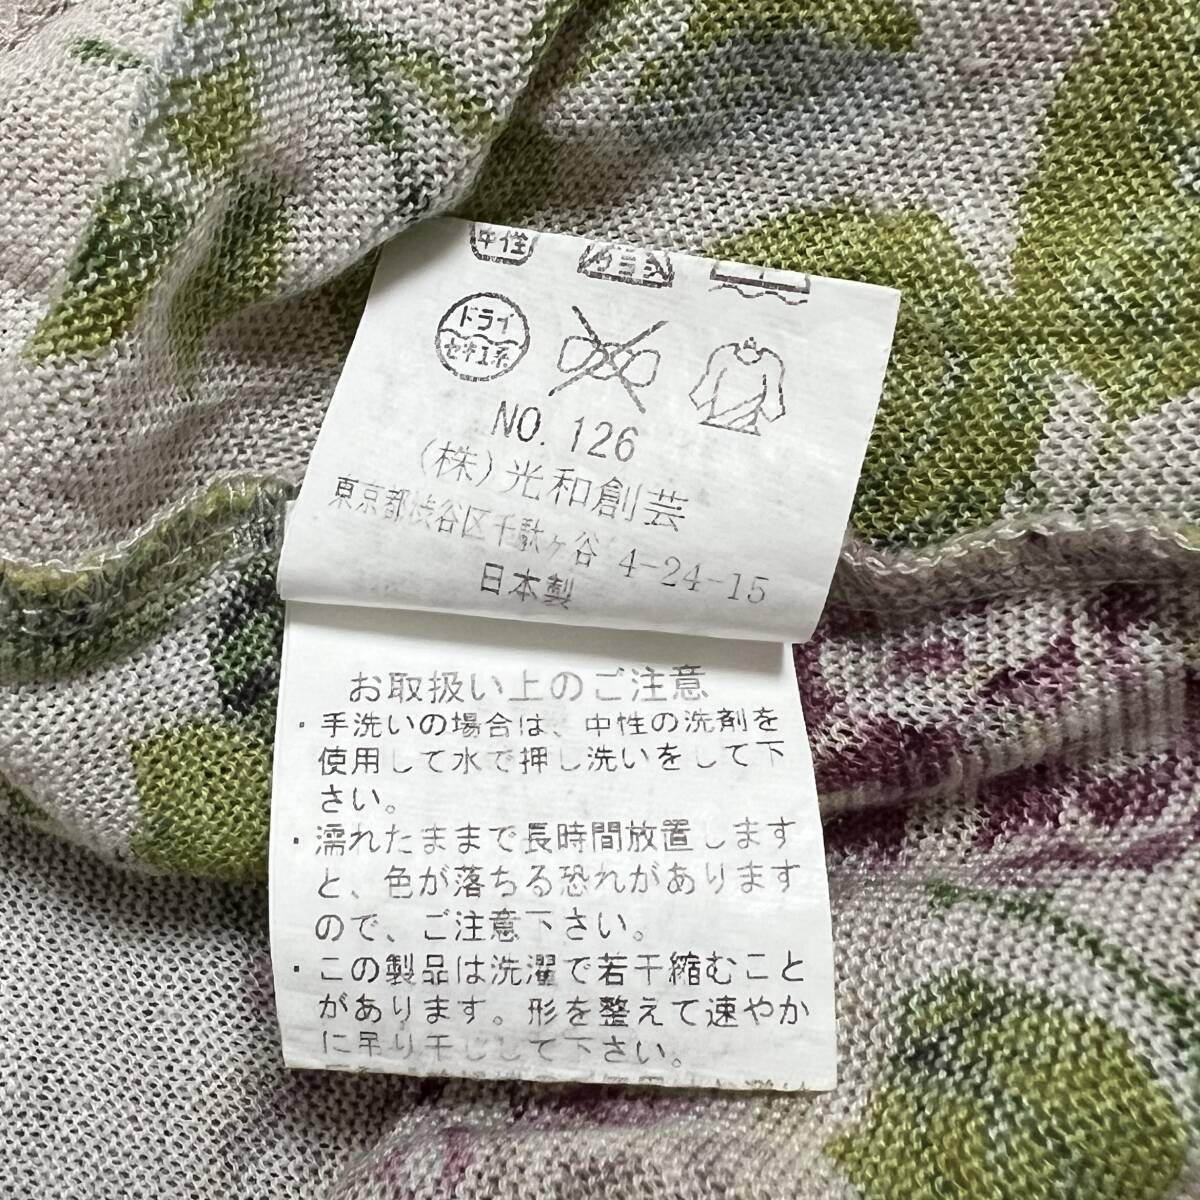 中性
ドライ
セキユ系
NO. 126
(株)光和創芸
東京都渋谷区千駄ヶ谷 4-24-15
日本製
お取扱い上のご注意
・手洗いの場合は、中性の洗剤を
使用して水で押し洗いをして下
さい。
・濡れたままで長時間放置します
と、色が落ちる恐れがあります
ので、ご注意下さい。
・この製品は洗濯で若干縮むこと
があります。形を整えて速やか
に吊り干しして下さい。